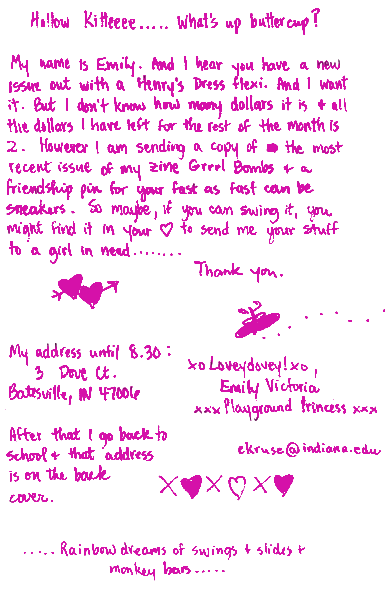 Hallow Kitteeee..... What's up buttercup?
My name is Emily. And I hear you have a new
issue out with a Henry's Dress flexi. And I want
it. But I don't know how many dollars it is + all
the dollars I have left for the rest of the month is
2. However I am sending a copy of the most
recent issue of my zine Grrrl Bombs + a
friendship pin for your fast as fast can be
sneakers. So maybe, if you can swing it, you
might find it in your ♡ to send me your stuff
to a girl in need........
Thank you.
My address until 8.30:
3 Dove Ct.
Batesville, IN 47006
xo Loveydovey! xo,
Emily Victoria
xxx Playground Princess xxx
After that I go back to
school + that address
is on the back
cover.
ekruse@indiana.edu
X♥X♡X♥
.....Rainbow dreams of swings + slides +
monkey bars.....